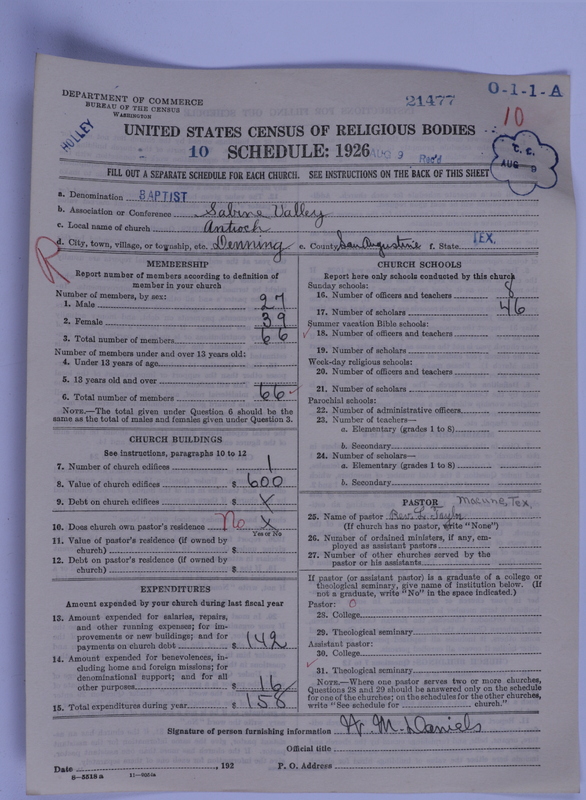 DEPARTMENT OF COMMERCE
BUREAU OF THE CENSUS
WASHINGTON
21477
O-1-1-A
10
HOLLEY
UNITED STATES CENSUS OF RELIGIOUS BODIES
10 SCHEDULE: 1926
AUG 9 Rec'd
C. C.
AUG 9
FILL OUT A SEPARATE SCHEDULE FOR EACH CHURCH. SEE INSTRUCTIONS ON THE BACK OF THIS SHEET
a. Denomination BAPTIST
b. Association or Conference Sabine Valley
c. Local name of church Antioch
R
d. City, town, village, or township, etc. Denning e. County San Augustine f. State TEX.
MEMBERSHIP
Report number of members according to definition of
member in your church
Number of members, by sex:
1. Male 27
2. Female 39
3. Total number of members 66
Number of members under and over 13 years old:
4. Under 13 years of age
5. 13 years old and over
6. Total number of members 66
NOTE.—The total given under Question 6 should be the
same as the total of males and females given under Question 3.
CHURCH BUILDINGS
See instructions, paragraphs 10 to 12
7. Number of church edifices 1
8. Value of church edifices $ 600
9. Debt on church edifices $ X
10. Does church own pastor's residence No X
Yes or No
11. Value of pastor's residence (if owned by
church) $
12. Debt on pastor's residence (if owned by
church) $
EXPENDITURES
Amount expended by your church during last fiscal year
13. Amount expended for salaries, repairs,
and other running expenses; for im-
provements or new buildings; and for
payments on church debt $ 142
14. Amount expended for benevolences, in-
cluding home and foreign missions; for
denominational support; and for all
other purposes $ 16
15. Total expenditures during year $ 158
CHURCH SCHOOLS
Report here only schools conducted by this church
Sunday schools:
16. Number of officers and teachers 8
17. Number of scholars 46
Summer vacation Bible schools:
18. Number of officers and teachers
19. Number of scholars
Week-day religious schools:
20. Number of officers and teachers
21. Number of scholars
Parochial schools:
22. Number of administrative officers
23. Number of teachers—
a. Elementary (grades 1 to 8)
b. Secondary
24. Number of scholars—
a. Elementary (grades 1 to 8)
b. Secondary
PASTOR Macune, Tex.
25. Name of pastor Rev. L. Taylor
(If church has no pastor, write "None")
26. Number of ordained ministers, if any, em-
ployed as assistant pastors
27. Number of other churches served by the
pastor or his assistants
If pastor (or assistant pastor) is a graduate of a college or
theological seminary, give name of institution below. (If
not a graduate, write "No" in the space indicated.)
Pastor: 0
28. College
29. Theological seminary
Assistant pastor:
30. College
31. Theological seminary
NOTE.—Where one pastor serves two or more churches,
Questions 28 and 29 should be answered only on the schedule
for one of the churches; on the schedules for the other churches,
write "See schedule for church."
Signature of person furnishing information W. M. Daniels
Official title
Date , 192 P. O. Address
8—5518 a 11—8054a